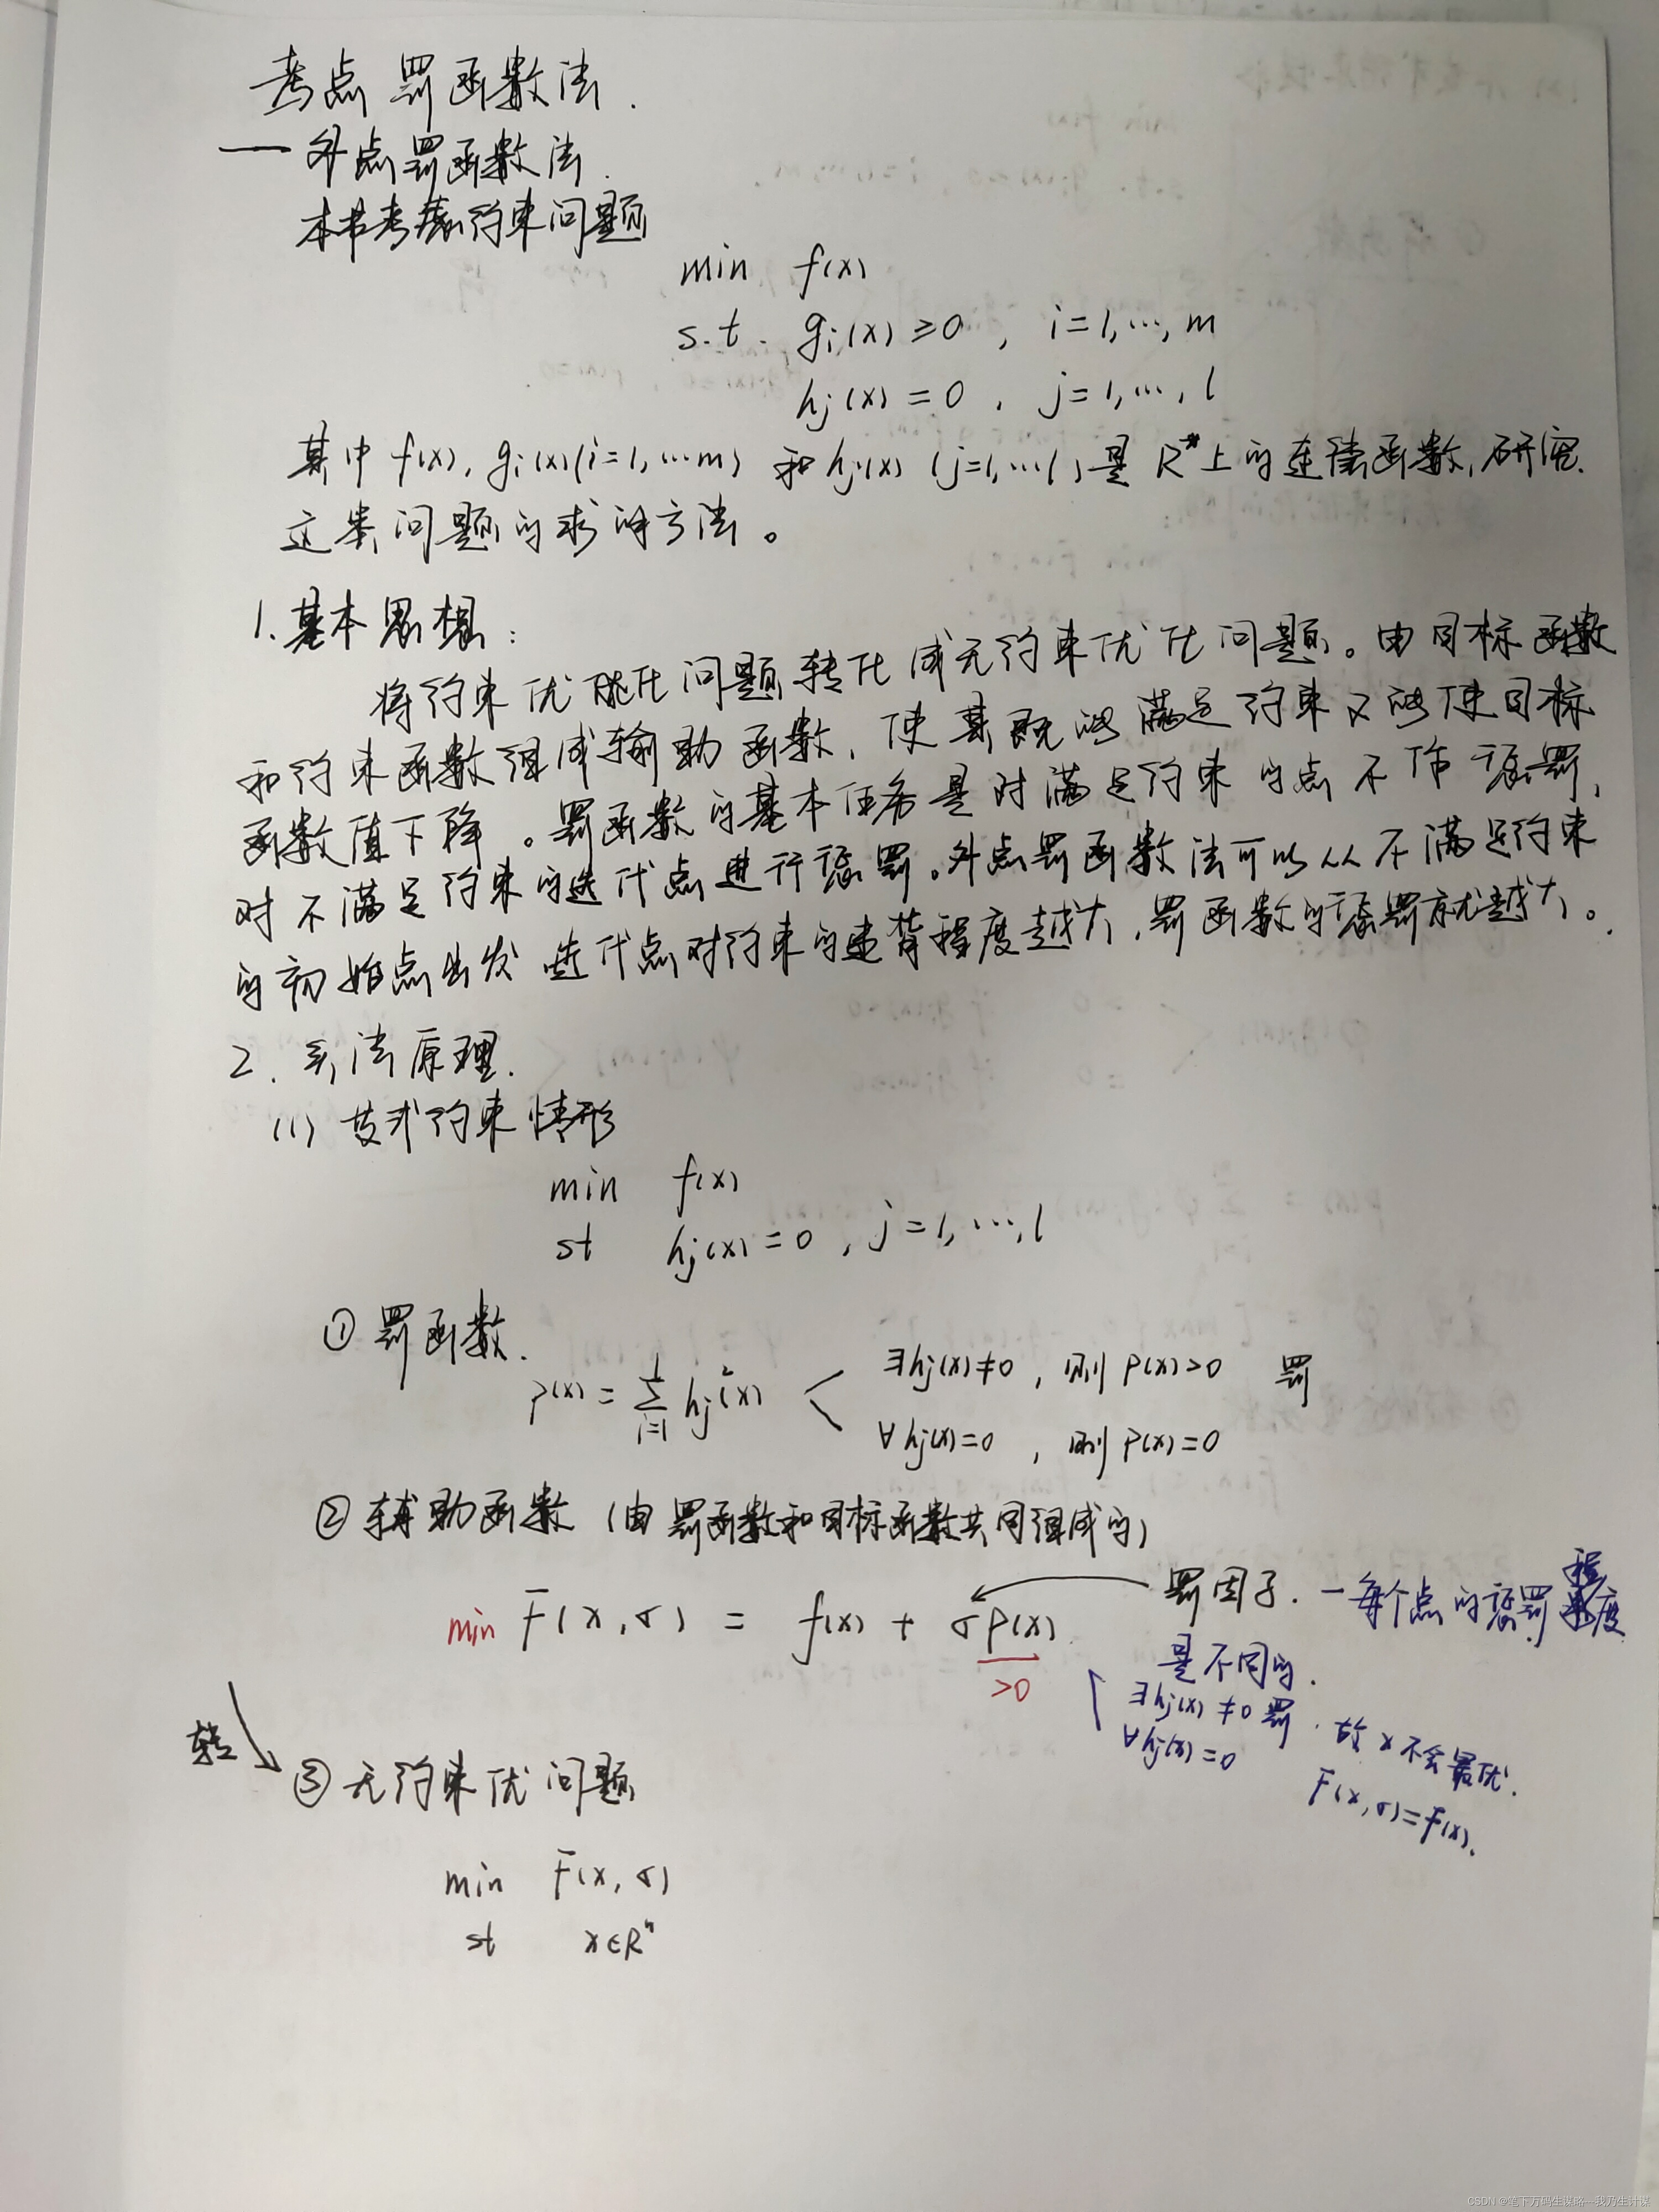 考点 罚函数法.
一 外点罚函数法.
本书考虑约束问题
min f(x)
s.t. gi(x)≥0, i=1,…,m
hj(x)=0, j=1,…,l
其中 f(x), gi(x)(i=1,…m) 和 hj(x) (j=1,…l) 是 Rⁿ上的连续函数,研究
这类问题的求解方法。
1.基本思想:
将约束优化问题转化成无约束优化问题。由目标函数
和约束函数组成辅助函数,使其既能满足约束又能使目标
函数值下降。罚函数的基本任务是对满足约束的点不作惩罚,
对不满足约束的迭代点进行惩罚。外点罚函数法可以从不满足约束
的初始点出发 迭代点对约束的违背程度越大,罚函数的惩罚就越大。
2. 算法原理.
(1) 等式约束情形
min f(x)
st hj(x)=0, j=1,…,l
① 罚函数.
∃hj(x)≠0, 则 P(x)>0 罚
P(x) = ∑ hj²(x)
∀hj(x)=0, 则 P(x)=0
② 辅助函数 (由罚函数和目标函数共同组成的)
罚因子. 一每个点的惩罚程度
min F(x,σ) = f(x) + σP(x)
是不同的.
>0
∃hj(x)≠0 罚. 故x不会最优.
∀hj(x)=0
F(x,σ)=f(x).
转
③ 无约束优问题
min F(x,σ)
st x∈Rⁿ
CSDN @笔下万码生谋略---我乃生计谋